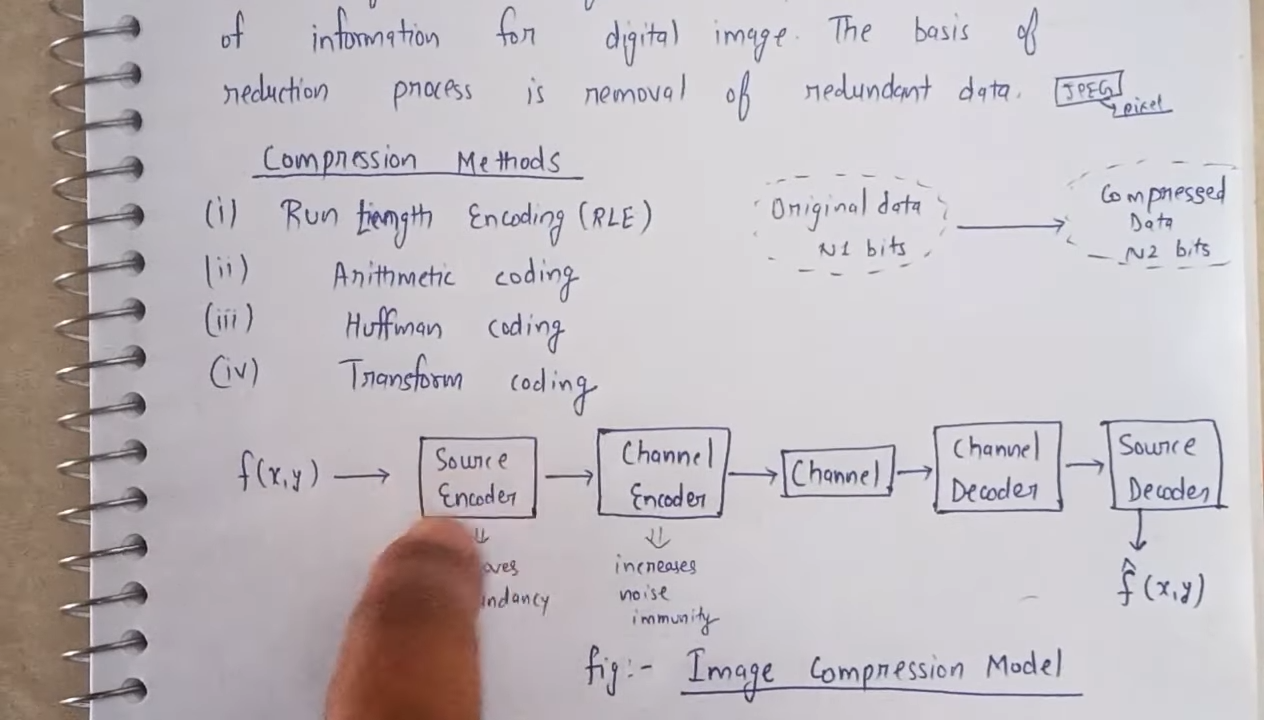 of information for digital image. The basis of
reduction process is removal of redundant data. JPEG
pixel
Compression Methods
(i) Run Length Encoding (RLE)
(ii) Arithmetic coding
(iii) Huffman coding
(iv) Transform coding
Original data
N1 bits
Compressed
Data
N2 bits
f(x,y)
Source
Encoder
Channel
Encoder
Channel
Channel
Decoder
Source
Decoder
increases
noise
immunity
f̂(x,y)
fig:- Image Compression Model